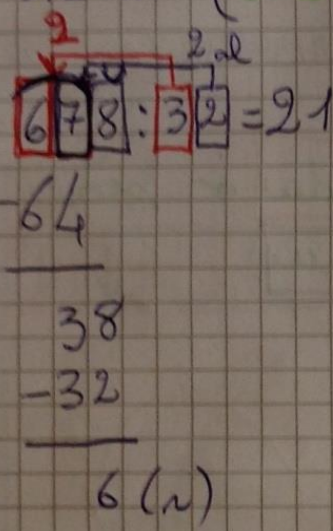 2 2
678:32=21
-64
38
-32
6 (r)